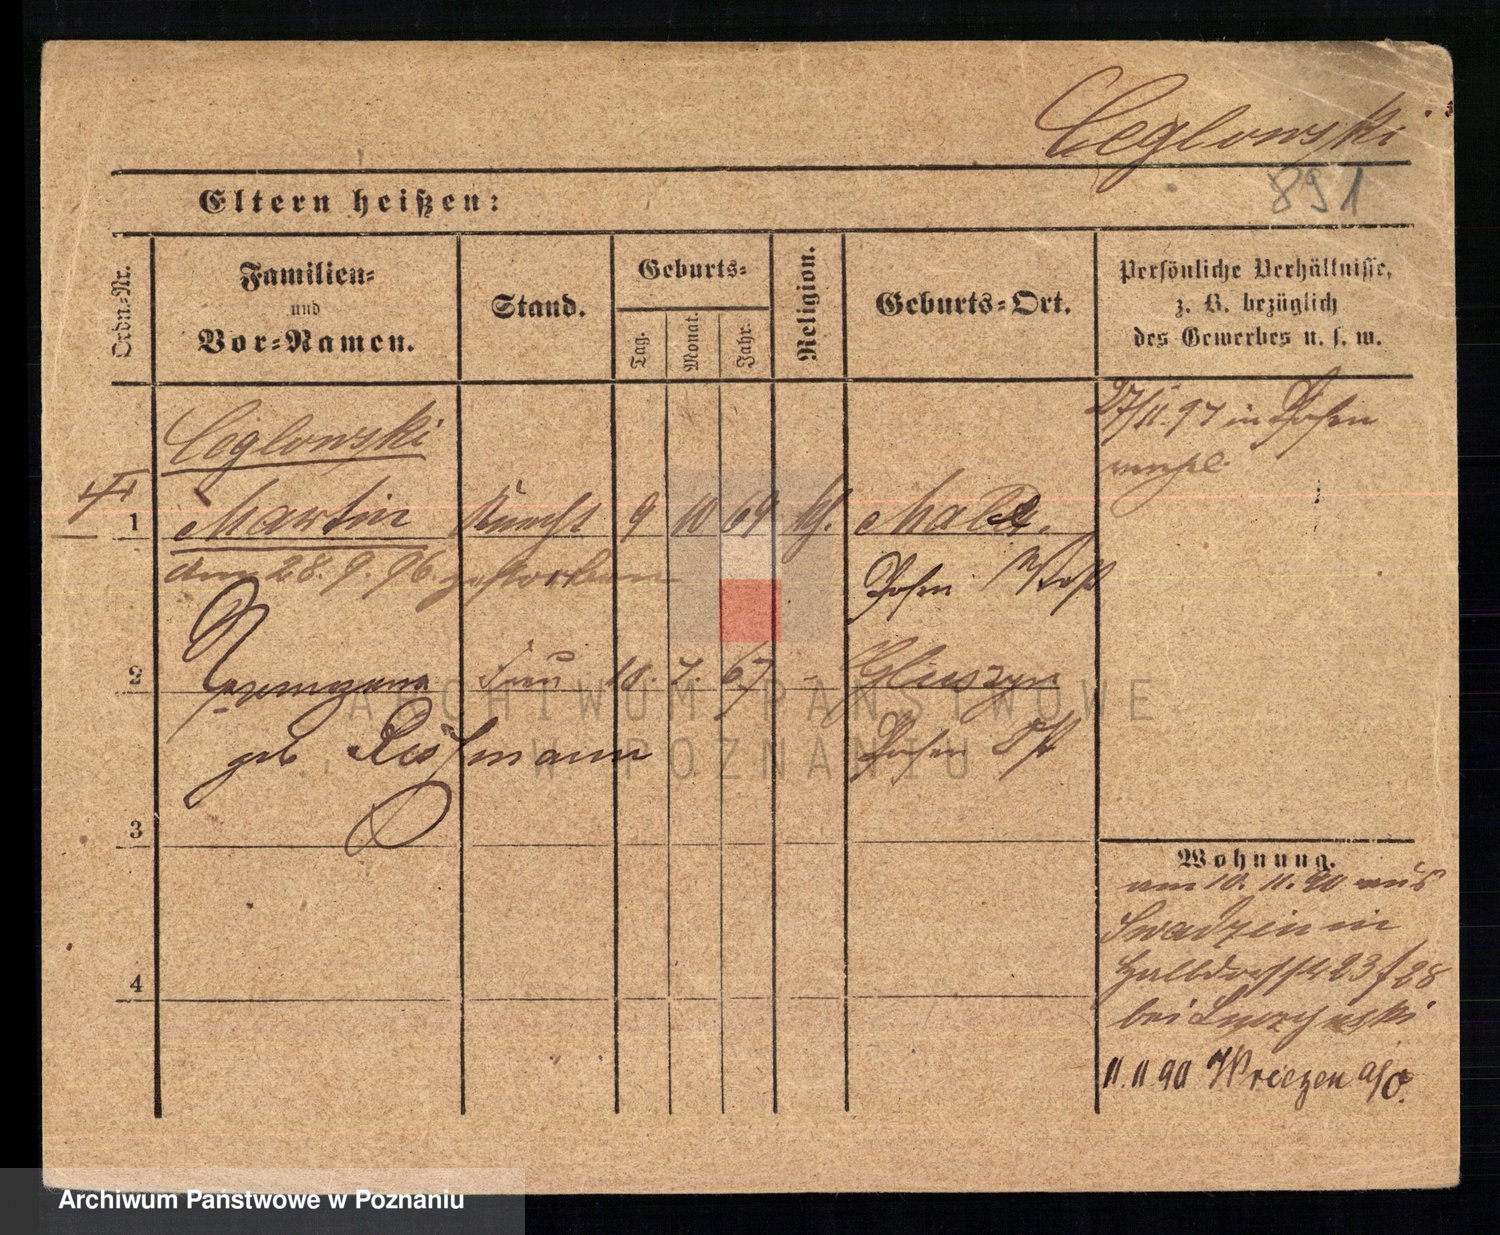 Ceglowski
891
Eltern heißen:
Ordn.-Nr.
Familien-
und
Vor-Namen.
Stand.
Geburts-
Tag.
Monat.
Jahr.
Religion.
Geburts-Ort.
Persönliche Verhältnisse,
z. B. bezüglich
des Gewerbes u. s. w.
Ceglowski
27/11.97 in Posen
1 Martin Knecht 9 10 64 kf.
am 28.9.96. gestorben
Posen West
2 Frau 18. 7. 67 - Gluszyn
geb
Posen Ost
3
Wohnung.
am 10. 11. 90 aus
Swadzim in
Halbdorfstr 23/28
4
bei
11.11 90 Wriezen a/O.
ARCHIWUM PAŃSTWOWE
W POZNANIU
Archiwum Państwowe w Poznaniu